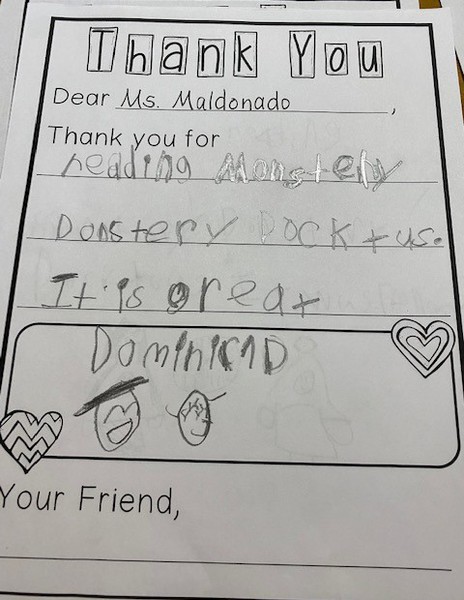 Thank You
Dear Ms. Maldonado,
Thank you for
reading Monstery
Donstery Dock tus.
It is great
Your Friend,